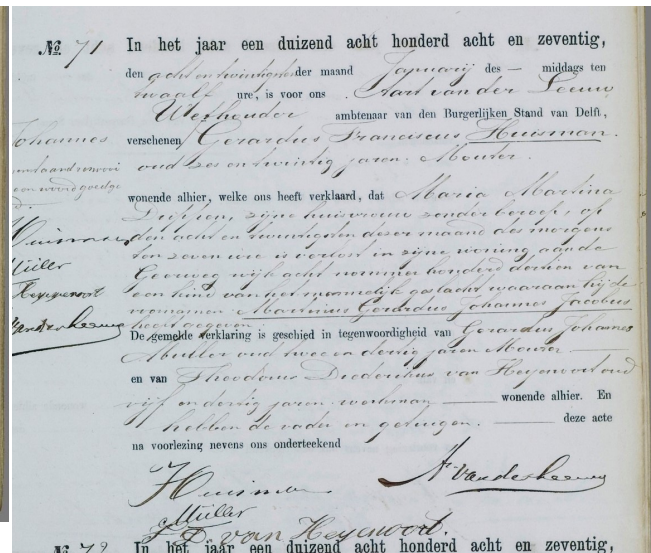 No 71
In het jaar een duizend acht honderd acht en zeventig,
den acht en twintigsten der maand Januarij des — middags ten
twaalf ure, is voor ons Aart van der Leeuw
Wethouder ambtenaar van den Burgerlijken Stand van Delft,
verschenen Gerardus Franciscus Huisman.
oud zes en twintig jaren, Metser.
wonende alhier, welke ons heeft verklaard, dat Maria Martina
zijne huisvrouw zonder beroep, op
den acht en twintigsten dezer maand des morgens
ten zeven ure is verlost in zijne woning aan de
Geerweg wijk acht nommer honderd dertien van
een kind van het mannelijk geslacht waaraan hij de
voornamen Martinus Gerardus Johannes Jacobus
heeft gegeven.
De gemelde verklaring is geschied in tegenwoordigheid van Gerardus Johannes
Muller oud twee en dertig jaren
en van Theodorus Diederikus van Heyenoort oud
vijf en dertig jaren werkman — wonende alhier. En
hebben de vader en getuigen — deze acte
na voorlezing nevens ons onderteekend
Johannes
een woord goedge
Huisman
Müller
Heyenoort
van der Leeuw
Huisman
A van der Leeuw
G Müller
T. D. van Heyenoort.
No 72
In het jaar een duizend acht honderd acht en zeventig,